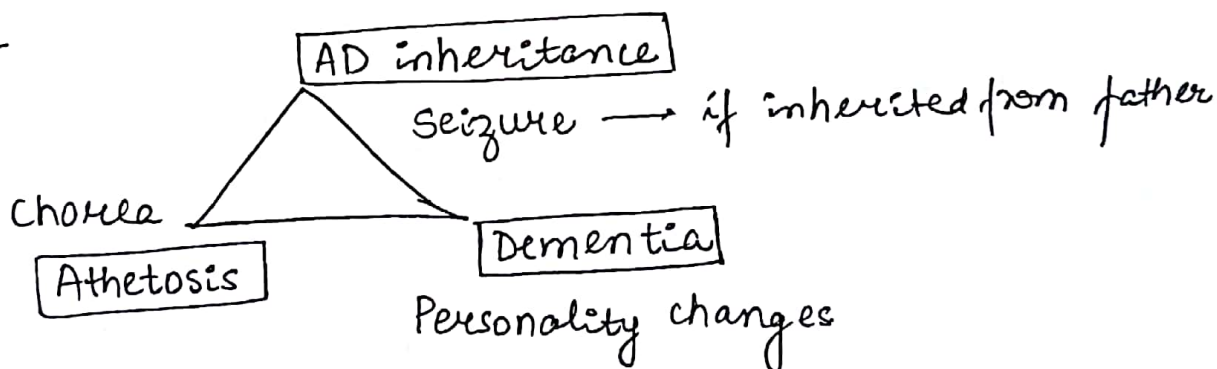 AD inheritance
seizure → if inherited from father
Chorea
Athetosis
Dementia
Personality changes